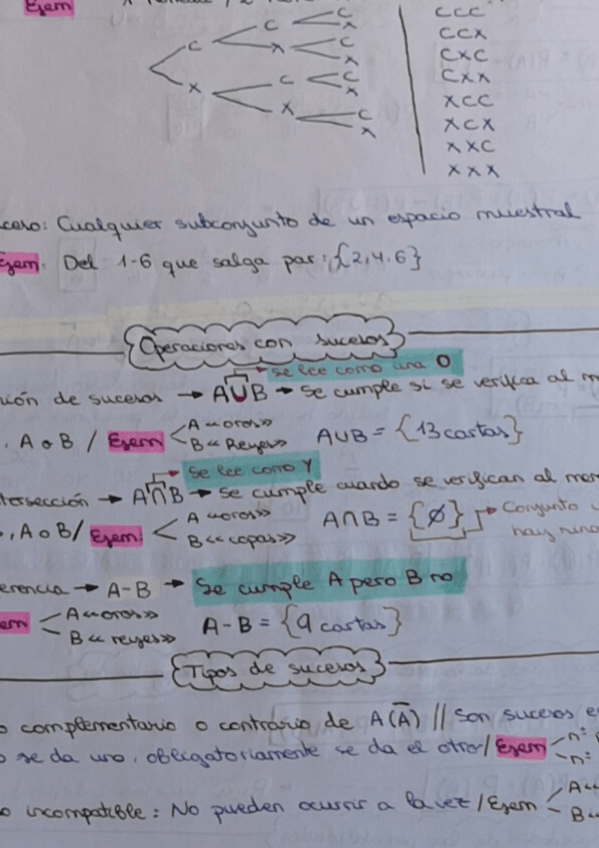 Ejem
C C X C X
X C X C X
C X C X
CCC
CCX
CXC
CXX
XCC
XCX
XXC
XXX
ceso: Cualquier subconjunto de un espacio muestral
Ejem. Del 1-6 que salga par: {2,4,6}
Operaciones con sucesos
se lee como una O
ción de sucesos → A∪B → Se cumple si se verifica al m
, A o B / Ejem A «oros» B «Reyes» A∪B = {13 cartas}
Se lee como Y
tersección → A∩B → se cumple cuando se verifican al men
, A o B / Ejem: A «oros» B «copas» A∩B = {Ø} → Conjunto
hay
erencia → A-B → Se cumple A pero B no
em A «oros» B «reyes» A-B = {9 cartas}
Tipos de sucesos
o complementario o contrario de A (A̅) // Son sucesos
o se da uno, obligatoriamente se da el otro / Ejem nº nº
o incompatible: No pueden ocurrir a la vez / Ejem A« B«